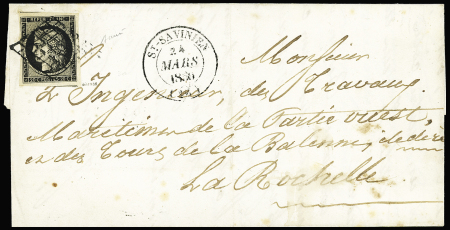 REPUB. FRANC.
ST-SAVINIEN
24
MARS
1850
Monsieur
L'Ingénieur, des Travaux
Maritimes de la Partie ouest,
et des Tours de la Baleine, île de ré
La Rochelle